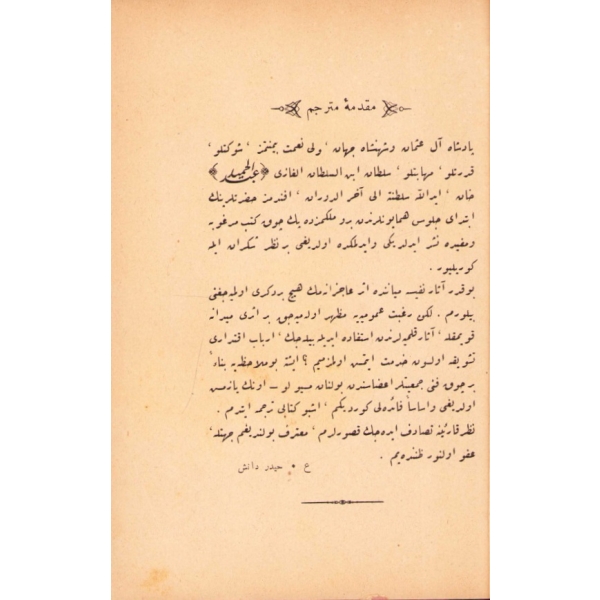 مقدمهٔ مترجم
پادشاه آل عثمان وشهنشاه جهان ، ولی نعمت بیمنتمز ، شوکتلو ،
قدرتلو ، مهابتلو ، سلطان ابن السلطان الغازی ﴿عبد الحمید﴾
خان ، ایدالله سلطنته الی آخر الدوران ، افندمز حضرتلرینك
ابتدای جلوس همایونلرندن برو ملکمزده پك چوق کتب مرغوبه
ومفیده نشر ایدلدیکی وایدلمکده اولدیغی بر نظر شکران ایله
کوریلیور .
بوقدر آثار نفیسه میاننده اثر عاجزانه‌مك هیچ بر دکری اولمیه‌جغنی
بیلورم . لکن رغبت عمومیه‌یه مظهر اولمیه‌جق بر اثری میدانه
قویمقله ، آثار قلمیه‌لرندن استفاده ایدیله‌بیله‌جك ، ارباب اقتداری
تشویقه اولسون خدمت ایتمش اولمزمی‌یم ؟ ایشته بوملاحظه‌یه بناءً
بر چوق فنی جمعیتلر اعضاسندن بولنان مسیو لو — اونك یازمش
اولدیغی واساساً فائده‌لی کوردیکم ، اشبو کتابی ترجمه ایتدم .
نظر قارئینه تصادف ایده‌جك قصورلرم ، معترف بولندیغم جهتله ،
عفو اولنور ظننده‌یم .
ع . حیدر دانش